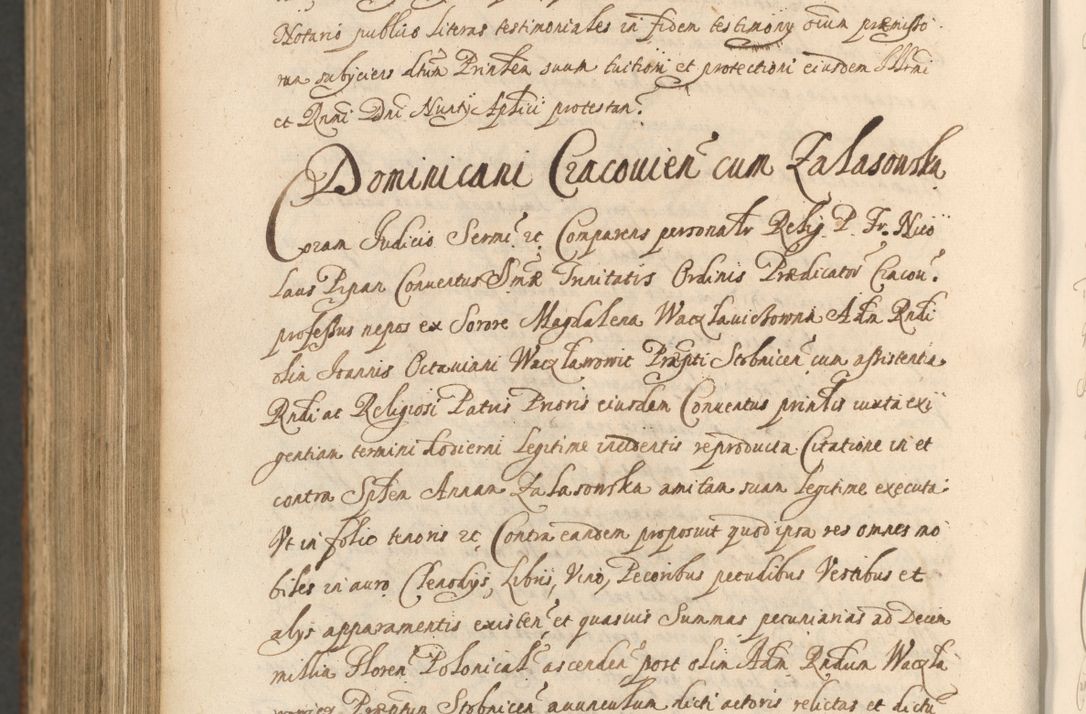 Notario publico literas testimoniales in fidem testimony oium præmisso
rum subyciens dtum Prinlem suum tuitioni et protectioni eiusdem Illrmi
et Rnmi Dni Nuntij Aplici protestan?
Dominicani Cracouien? cum Zalasowska
Coram Judicio Sermi? rc Comparens personalr Relig. P. Fr. Nico
laus Pipan Conuentus Smæ Trinitatis Ordinis Prædicator? Cracou?
professus nepos ex Sorore Magdalena Waczlauictowna Adm Rndi
olim Joannis Octauiani Waczlawowic Præpti Stobnicen? cum assistentia
Rndi ac Religiosi Patris Prioris eiusdem Conuentus prinlis iuxta exi
gentiam termini hodierni legitime incidentis reproducta Citatione in et
contra Spblem Annam Zalasowska amitam suam legitime executa:
Vt in folio tenoris rc Contra eandem proposuit quod ipsa res omnes mo
biles in auro, Clenodys, Libris, Vino, Pecoribus pecudibus Vestibus et
alys apparamentis existen? et quasuis Summas pecuniarias ad Decem
millia Floren? Polonical? ascenden? post olim Adm Rndum Waczla
Præptum Stobnicen? auunculum dicti actoris relictas et dictu?